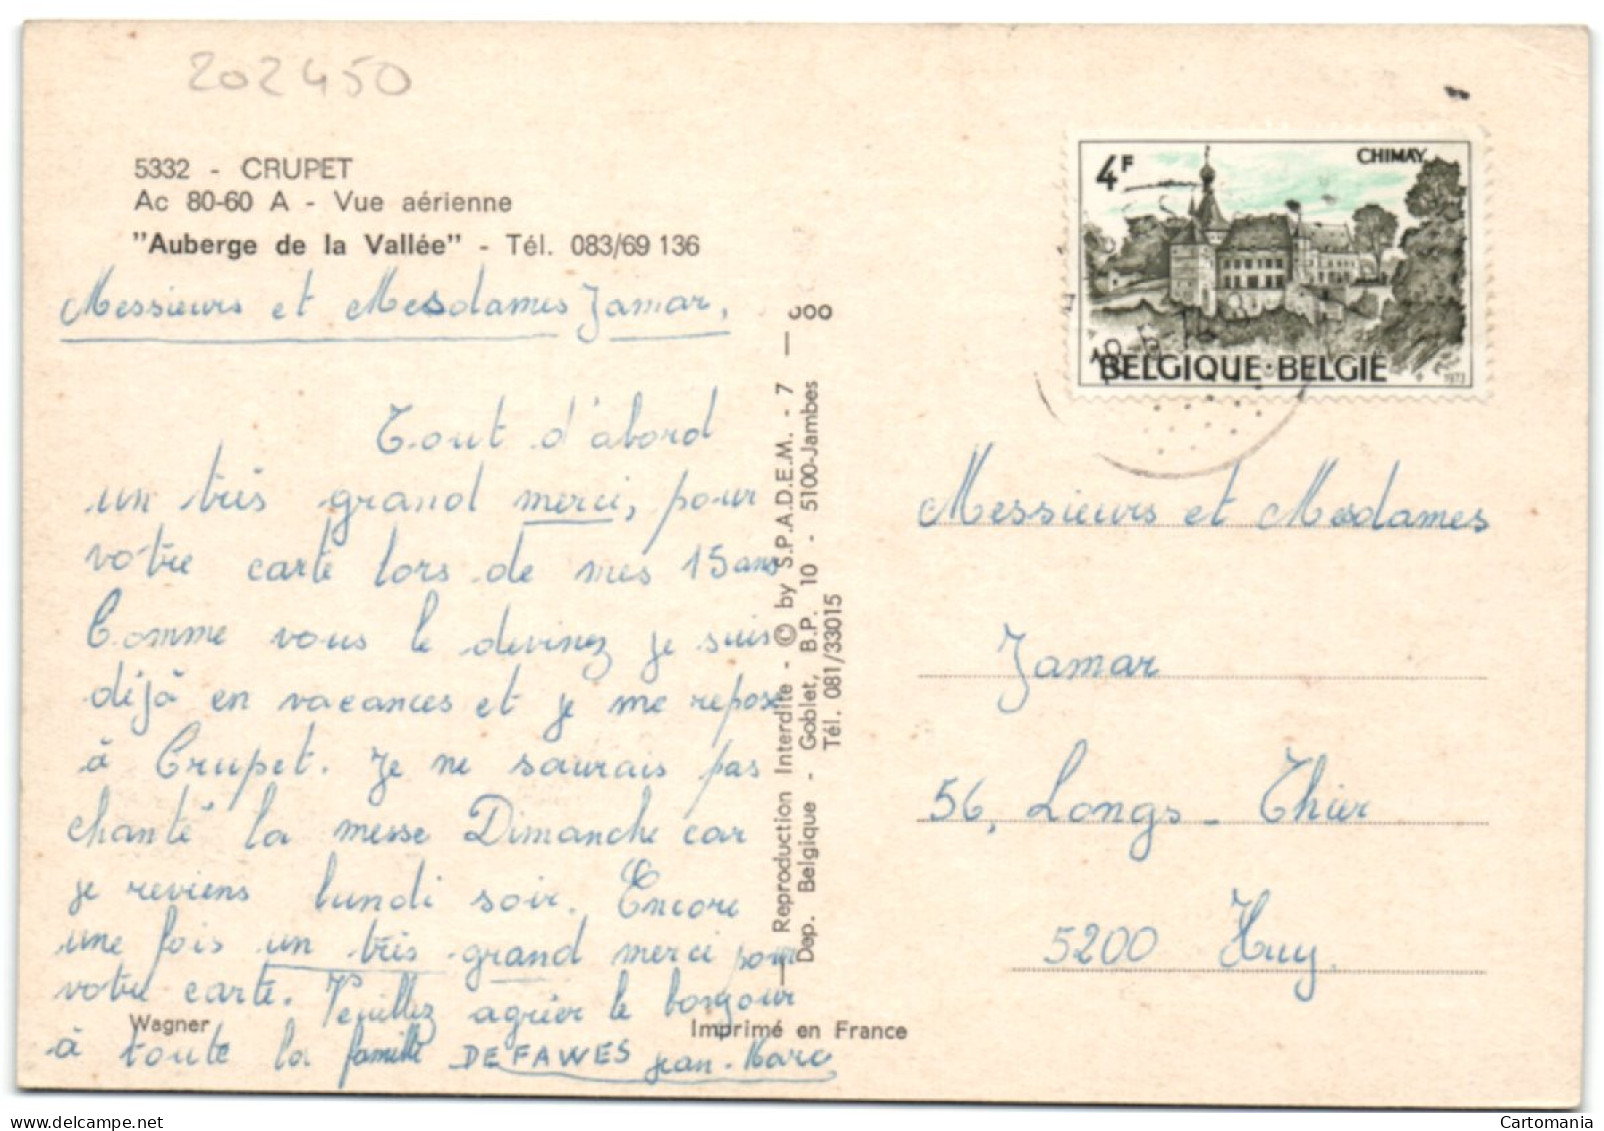 202450
5332 - CRUPET
Ac 80-60 A - Vue aérienne
"Auberge de la Vallée" - Tél. 083/69 136
Messieurs et Mesdames Jamar,
Tout d'abord
un très grand merci, pour
votre carte lors de mes 15 ans
Comme vous le devinez je suis
déjà en vacances et je me repose
à Crupet. Je ne saurais pas
chanté la messe Dimanche car
je reviens lundi soir. Encore
une fois un très grand merci pour
votre carte. Veuillez agréer le bonjour
à toute la famille DEFAWES Jean-Marc
Wagner
Imprimé en France
Reproduction Interdite - © by S.P.A.D.E.M. - 7 — ooo
Dep. Belgique - Goblet, B.P. 10 - 5100-Jambes
Tél. 081/33015
4F
CHIMAY
BELGIQUE·BELGIË
1973
Messieurs et Mesdames
Jamar
56, Longs-Thier
5200 Huy.
Cartomania